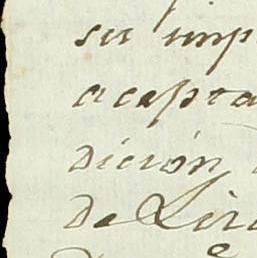 su imp
acepta
dicion
de Lir